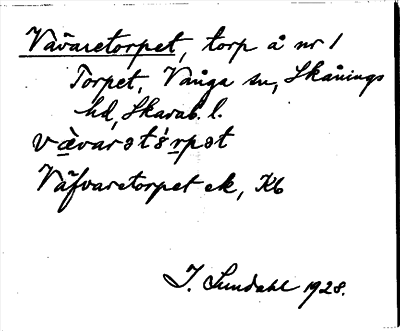 Vävaretorpet, torp å nr 1
Torpet, Vånga sn, Skånings
hd, Skarab. l.
vä̀varətórpət
Väfvaretorpet ek, Kb
J. Sundahl 1928.